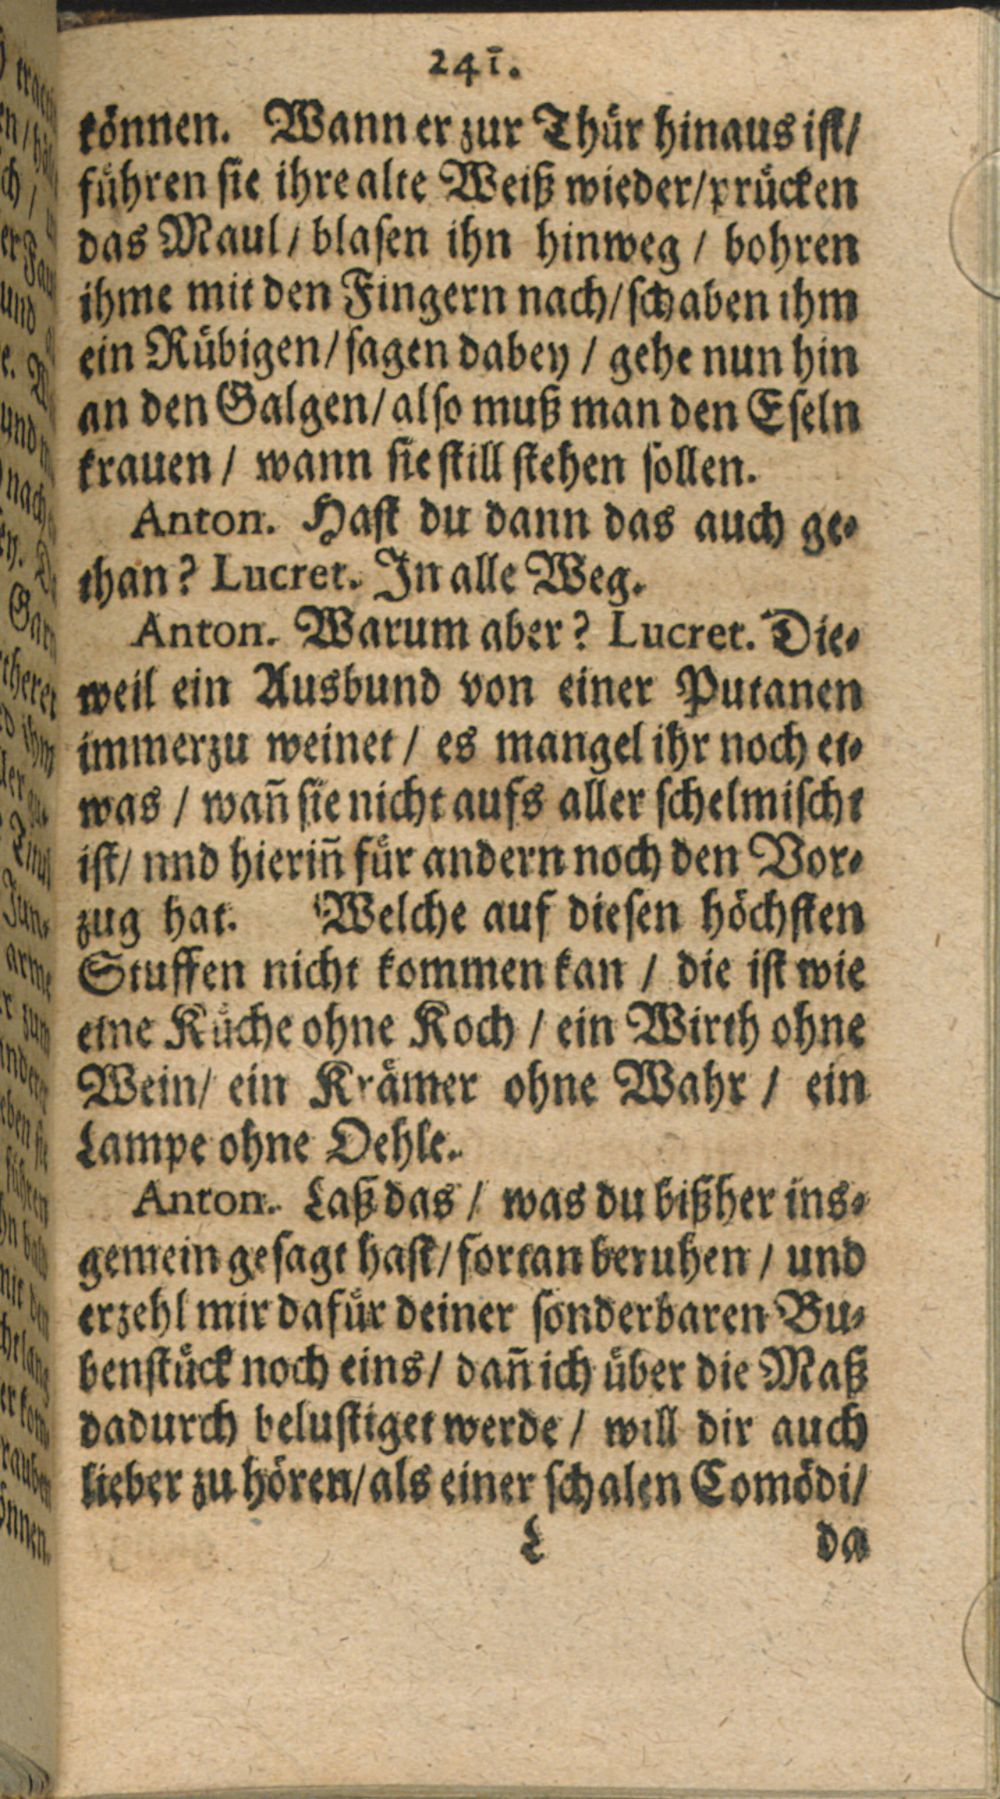 241.
können. Wann er zur Thür hinaus ist/
führen sie ihre alte Weiß wieder/prücken
das Maul/ blasen ihn hinweg / bohren
ihme mit den Fingern nach/schaben ihm
ein Rübigen/sagen dabey / gehe nun hin
an den Galgen/also muß man den Eseln
krauen / wann sie still stehen sollen.
Anton. Hast du dann das auch ge-
than? Lucret. In alle Weg.
Anton. Warum aber? Lucret. Die-
weil ein Ausbund von einer Putanen
immerzu weinet / es mangel ihr noch et-
was / wañ sie nicht aufs aller schelmischt
ist/ nnd hieriñ für andern noch den Vor-
zug hat. Welche auf diesen höchsten
Stuffen nicht kommen kan / die ist wie
eine Küche ohne Koch / ein Wirth ohne
Wein/ ein Krämer ohne Wahr / ein
Lampe ohne Oehle.
Anton. Laß das / was du bißher ins-
gemein gesagt hast/fortan beruhen / und
erzehl mir dafür deiner sonderbaren Bu-
benstück noch eins/ dañ ich über die Maß
dadurch belustiget werde / will dir auch
lieber zu hören/als einer schalen Comödi/
L da